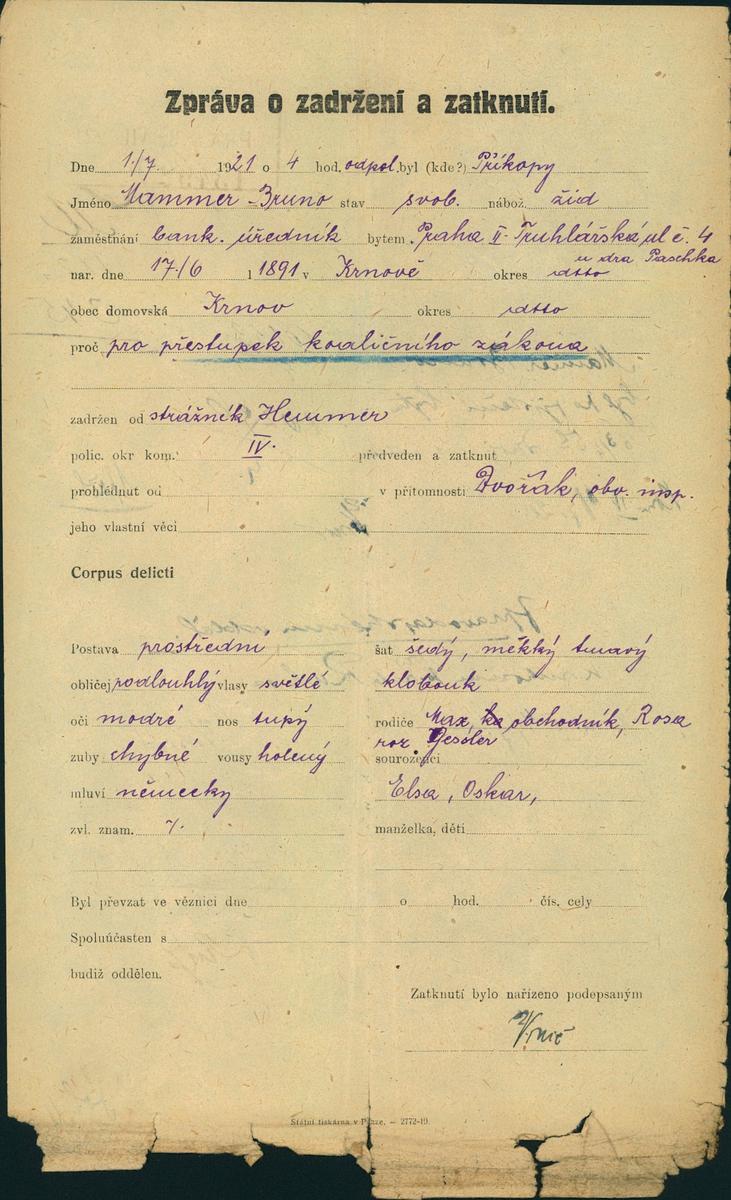 Zpráva o zadržení a zatknutí.
Dne 1./7. 1921 o 4 hod. odpol. byl (kde?) Příkopy
Jméno Mammer Bruno stav svob. nábož. žid
zaměstnání bank. úředník bytem Praha II- Truhlářská ul č. 4
u dra Paschka
nar. dne 17./6 1891 v Krnově okres idtto
obec domovská Krnov okres idtto
proč pro přestupek koaličního zákona
zadržen od strážník Hemmer
polic. okr kom. IV. předveden a zatknut
prohlédnut od v přítomnosti Dvořák, obv. insp.
jeho vlastní věci
Corpus delicti
Postava prostřední šat šedý, měkký tmavý
obličej podlouhlý vlasy světlé klobouk
oči modré nos tupý rodiče Max, obchodník, Rosa
roz Gessler
zuby chybné vousy holený sourozenci
mluví německy Elsa, Oskar,
zvl. znam. manželka, děti
Byl převzat ve věznici dne o hod. čís. cely
Spoluúčasten s
budiž oddělen.
Zatknutí bylo nařízeno podepsaným
Státní tiskárna v Praze. — 2772-19.